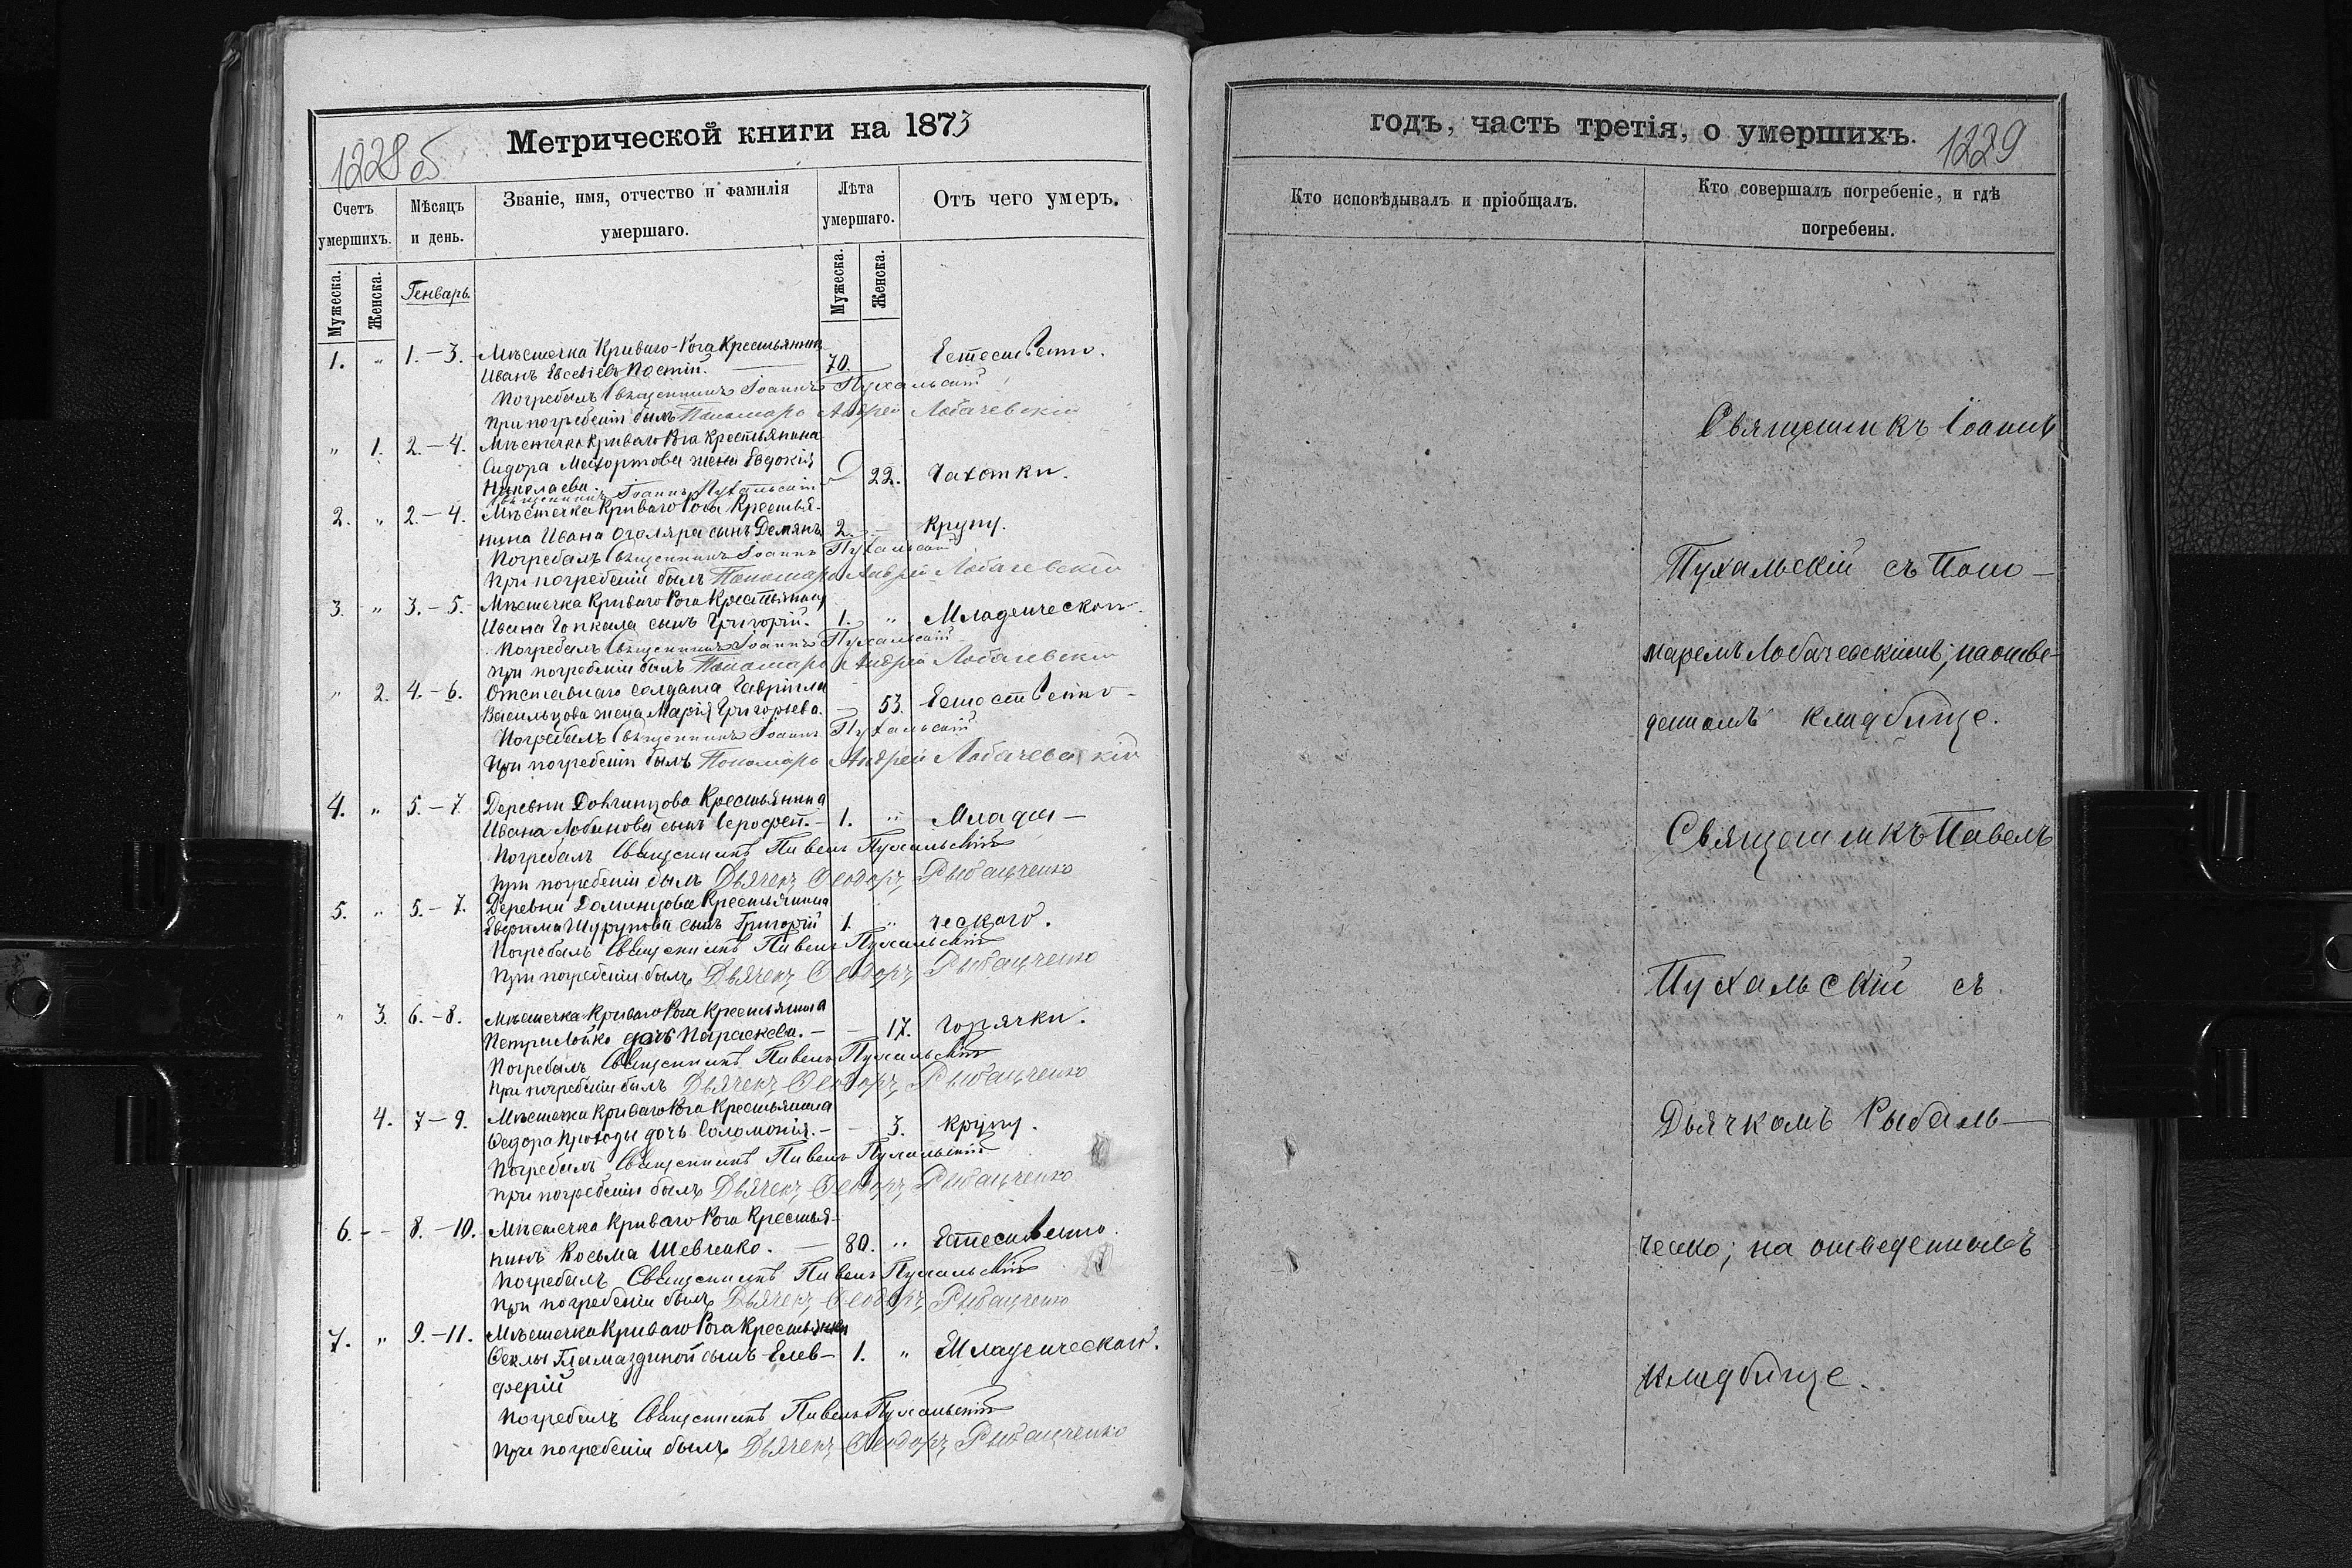 1228 об
Метрической книги на 1873
Счетъ умершихъ.
Мѣсяцъ и день.
Званіе, имя, отчество и фамилія умершаго.
Лѣта умершаго.
Отъ чего умеръ.
Мужеска.
Женска.
Генварь.
Мужеска.
Женска.
1. „ 1.–3. Мѣстечка Криваго-Рога Крестьянинъ
Иванъ Евсевіевъ Постій. 70. Естественно.
Погребалъ Священникъ Іоаннъ Пухальскій
При погребеніи былъ Пономарь Андрей Лобачевскій
„ 1. 2.–4. Мѣстечка Криваго Рога Крестьянина
Сидора жена Евдокія
Николаева. 22. Чахотки.
Священникъ Іоаннъ Пухальскій
2. „ 2.–4. Мѣстечка Криваго Рога Крестья-
нина Ивана сынъ Демянъ 2. – Крупу.
Погребалъ Священникъ Іоаннъ Пухальскій
При погребеніи былъ Пономарь Андрей Лобачевскій
3. „ 3.–5. Мѣстечка Криваго Рога Крестьянина
Ивана Гопкала сынъ Григорій. 1. „ Младенческой.
Погребалъ Священникъ Іоаннъ Пухальскій
При погребеніи былъ Пономарь Андрей Лобачевскій
„ 2. 4.–6. Отставнаго солдата Гавріила
Васильцова жена Марія Григорьева. – 53. Естественно
Погребалъ Священникъ Іоаннъ Пухальскій
При погребеніи былъ Пономарь Андрей Лобачевскій
4. „ 5.–7. Деревни Крестьянина
Ивана Лобанова сынъ 1. „ Младен–
Погребалъ Священникъ Павелъ Пухальскій
При погребеніи былъ Дьячекъ Ѳеодоръ Рыбальченко
5. „ 5.–7. Деревни Крестьянина
Шурупова сынъ Григорій 1. „ ческаго.
Погребалъ Священникъ Павелъ Пухальскій
При погребеніи былъ Дьячекъ Ѳеодоръ Рыбальченко
„ 3. 6.–8. Мѣстечка Криваго Рога Крестьянина
Петра дочь Параскева. – – 17. Горячки.
Погребалъ Священникъ Павелъ Пухальскій
При погребеніи былъ Дьячекъ Ѳеодоръ Рыбальченко
4. 7–9. Мѣстечка Криваго Рога Крестьянина
Ѳедора дочь Соломонія. – – 3. Крупу.
Погребалъ Священникъ Павелъ Пухальскій
При погребеніи былъ Дьячекъ Ѳеодоръ Рыбальченко
6. – – 8.–10. Мѣстечка Криваго Рога Крестья-
нинъ Косьма Шевченко. – 80. „ Естественно.
Погребалъ Священникъ Павелъ Пухальскій
При погребеніи былъ Дьячекъ Ѳеодоръ Рыбальченко
7. „ 9.–11. Мѣстечка Криваго Рога Крестьянки
Ѳеклы Гламаздиной сынъ Елев– 1. „ Младенческаго.
ферій
Погребалъ Священникъ Павелъ Пухальскій
При погребеніи былъ Дьячекъ Ѳеодоръ Рыбальченко
годъ, часть третія, о умершихъ.
1229
Кто исповѣдывалъ и пріобщалъ.
Кто совершалъ погребеніе, и гдѣ погребены.
Священникъ Іоаннъ
Пухальскій съ Поно–
маремъ Лобачевскимъ; на отве-
денномъ кладбище.
Священникъ Павелъ
Пухальскій съ
Дьячкомъ Рыбаль–
ченко; на отведенномъ
кладбище.